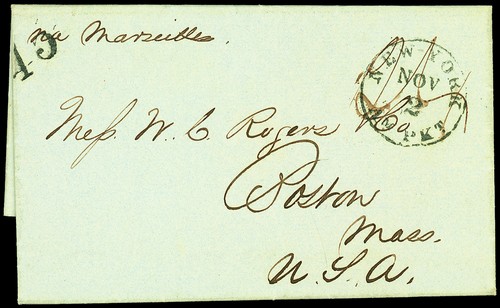 via Marseilles.
45
NEW-YORK
NOV
2
AM. PKT
Mess. W. C. Rogers & Co.
Boston
Mass.
U. S. A.